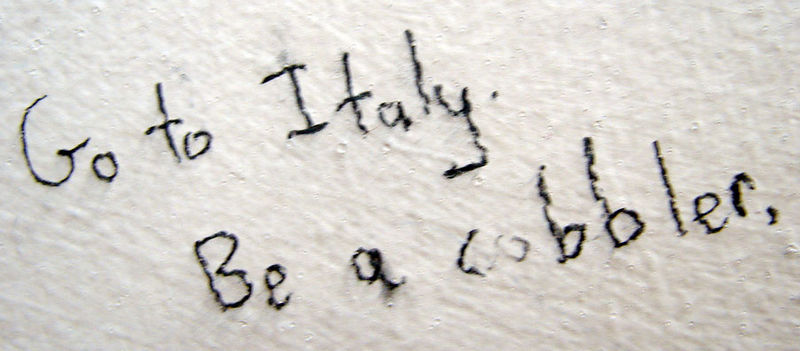 Go to Italy.
Be a cobbler.